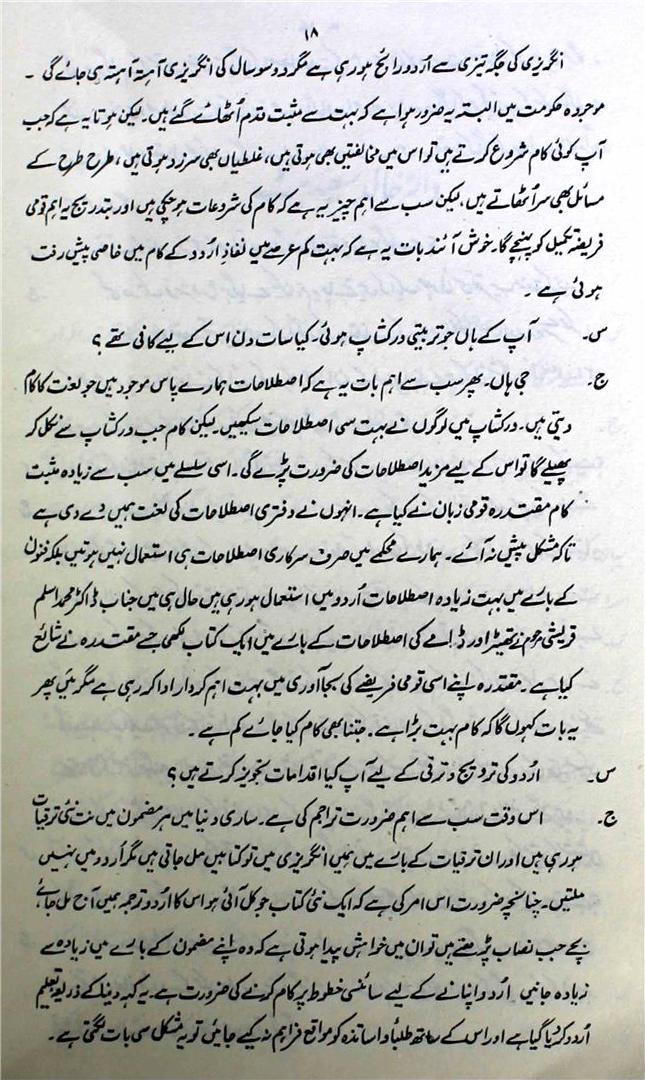 ۱۸
انگریزی کی جگہ تیزی سے اُردو رائج ہو رہی ہے مگر دو سو سال کی انگریزی آہستہ آہستہ ہی جائے گی ۔
موجودہ حکومت میں البتہ یہ ضرور ہوا ہے کہ بہت سے مثبت قدم اُٹھائے گئے ہیں۔ لیکن ہوتا یہ ہے کہ جب
آپ کوئی کام شروع کرتے ہیں تو اس میں مخالفتیں بھی ہوتی ہیں، غلطیاں بھی سرزد ہوتی ہیں، طرح طرح کے
مسائل بھی سر اُٹھاتے ہیں، لیکن سب سے اہم چیز یہ ہے کہ کام کی شروعات ہو چکی ہیں اور بتدریج یہ اہم قومی
فریضہ تکمیل کو پہنچے گا۔ خوش آئند بات یہ ہے کہ بہت کم عرصے میں نفاذِ اردو کے کام میں خاصی پیش رفت
ہوئی ہے ۔
س۔ آپ کے ہاں جو تربیتی ورکشاپ ہوئی۔ کیا سات دن اس کے لیے کافی تھے ؟
ج۔ جی ہاں۔ پھر سب سے اہم بات یہ ہے کہ اصطلاحات ہمارے پاس موجود ہیں جو لغت کا کام
دیتی ہیں۔ ورکشاپ میں لوگوں نے بہت سی اصطلاحات سیکھیں۔ لیکن کام جب ورکشاپ سے نکل کر
پھیلے گا تو اس کے لیے مزید اصطلاحات کی ضرورت پڑے گی۔ اسی سلسلے میں سب سے زیادہ مثبت
کام مقتدرہ قومی زبان نے کیا ہے۔ انہوں نے دفتری اصطلاحات کی لغت ہمیں دے دی ہے
تاکہ مشکل پیش نہ آئے۔ ہمارے محکمے میں صرف سرکاری اصطلاحات ہی استعمال نہیں ہوتیں بلکہ فنون
کے بارے میں بہت زیادہ اصطلاحات اُردو میں استعمال ہو رہی ہیں حال ہی میں جناب ڈاکٹر محمد اسلم
قریشی مرحوم نے تھیٹر اور ڈرامے کی اصطلاحات کے بارے میں ایک کتاب لکھی جسے مقتدرہ نے شائع
کیا ہے۔ مقتدرہ اپنے اسی قومی فریضے کی بجا آوری میں بہت اہم کردار ادا کر رہی ہے مگر میں پھر
یہ بات کہوں گا کہ کام بہت بڑا ہے۔ جتنا بھی کام کیا جائے کم ہے ۔
س۔ اردو کی ترویج و ترقی کے لیے آپ کیا اقدامات تجویز کرتے ہیں ؟
ج۔ اس وقت سب سے اہم ضرورت تراجم کی ہے۔ ساری دنیا میں ہر مضمون میں نت نئی ترقیات
ہو رہی ہیں اور ان ترقیات کے بارے میں ہمیں انگریزی میں تو کتابیں مل جاتی ہیں مگر اُردو میں نہیں
ملتیں۔ چنانچہ ضرورت اس امر کی ہے کہ ایک نئی کتاب جو کل آئی ہو اس کا اُردو ترجمہ ہمیں آج مل جائے
بچے جب نصاب پڑھتے ہیں تو ان میں خواہش پیدا ہوتی ہے کہ وہ اپنے مضمون کے بارے میں زیادہ سے
زیادہ جانیں اردو اپنانے کے لیے سائنسی خطوط پر کام کرنے کی ضرورت ہے۔ یہ کہہ دینا کہ ذریعہ تعلیم
اُردو کر دیا گیا ہے اور اس کے ساتھ طلباء و اساتذہ کو مواقع فراہم نہ کیے جائیں تو یہ مشکل سی بات لگتی ہے ۔